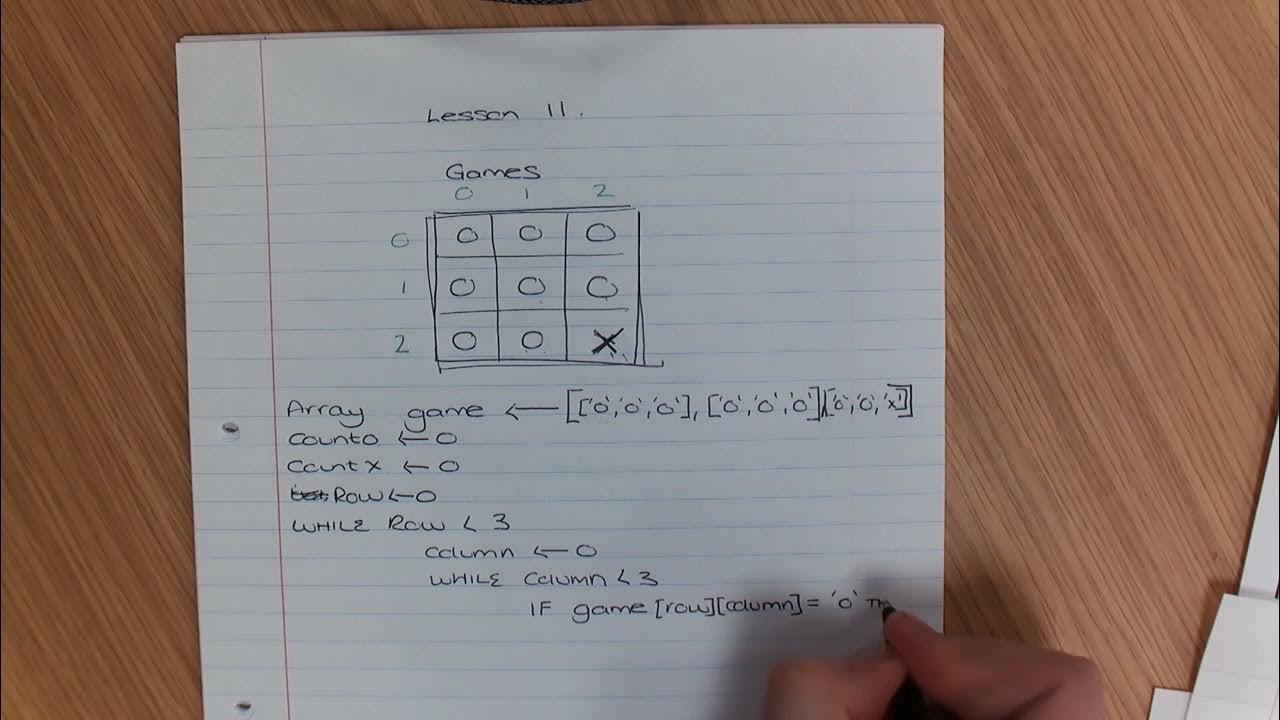 Lesson 11.
Games
0 1 2
0 O O O
1 O O O
2 O O X
Array game ← [['O','O','O'],['O','O','O'],['O','O','X']]
CountO ← 0
Count X ← 0
Row ← 0
WHILE Row < 3
Column ← 0
WHILE Column < 3
IF game [row][column] = 'O' TH